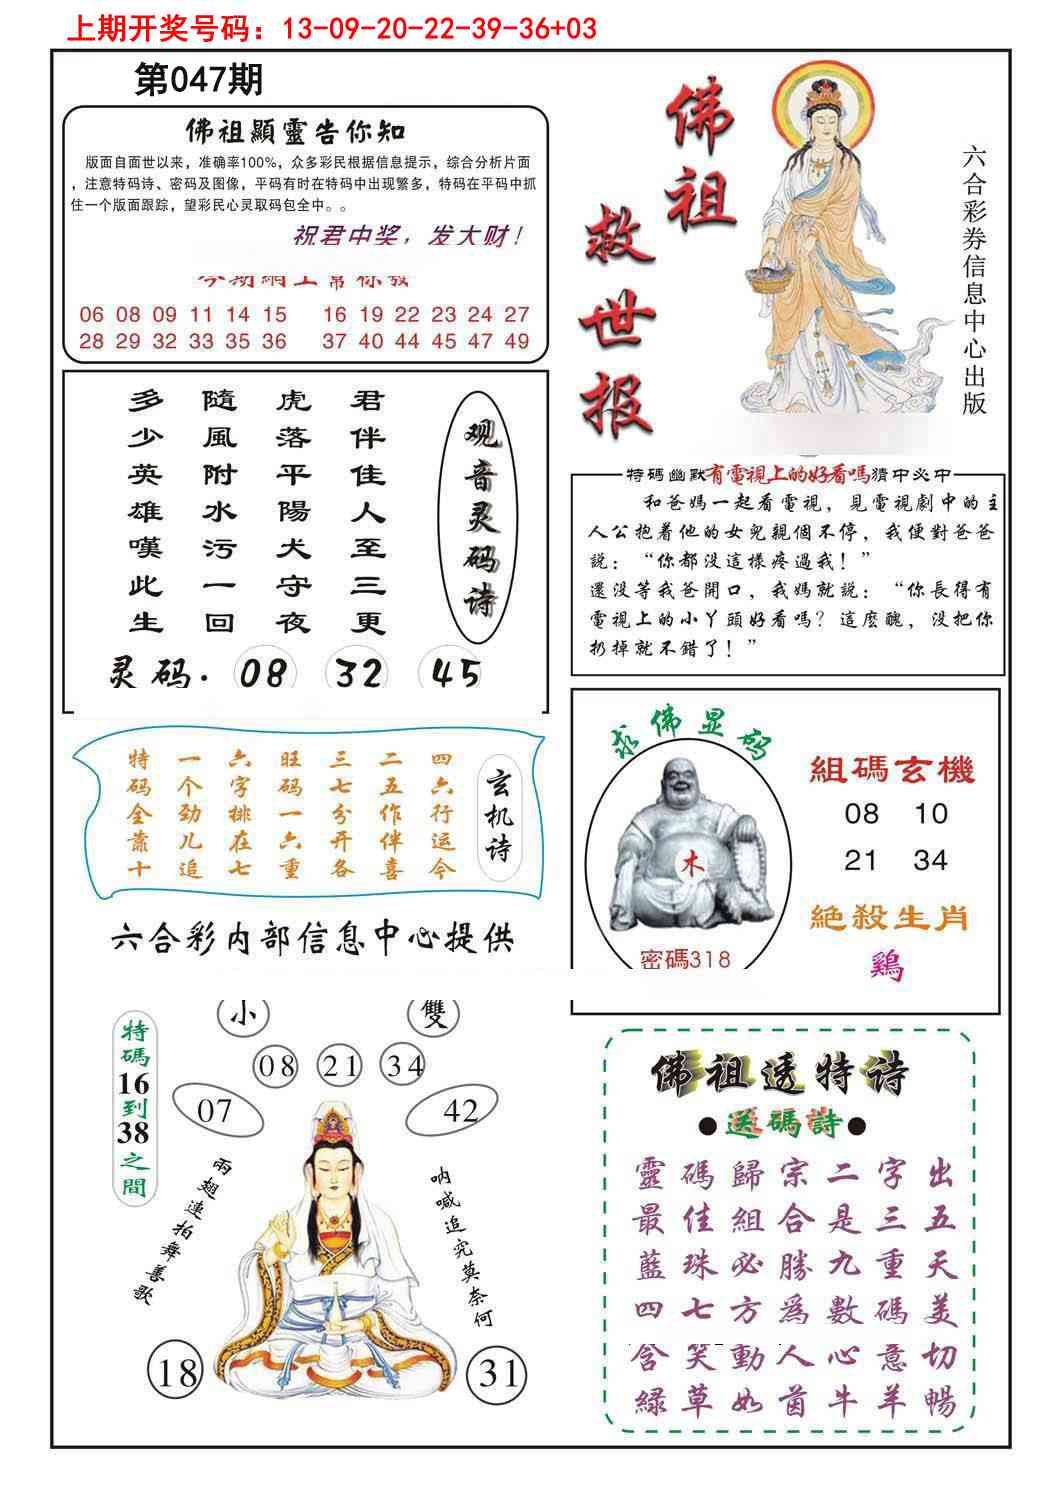 上期开奖号码：13-09-20-22-39-36+03
第047期
佛祖顯靈告你知
版面自面世以来，准确率100%，众多彩民根据信息提示，综合分析片面
，注意特码诗、密码及图像，平码有时在特码中出现繁多，特码在平码中抓
住一个版面跟踪，望彩民心灵取码包全中。。
祝君中奖，发大财！
06 08 09 11 14 15 16 19 22 23 24 27
28 29 32 33 35 36 37 40 44 45 47 49
佛祖
救世报
六合彩券信息中心出版
君伴佳人至三更
虎落平陽犬守夜
隨風附水污一回
多少英雄嘆此生
观音灵码诗
灵码. 08 32 45
特碼幽默有電視上的好看嗎猜中必中
和爸媽一起看電視，見電視劇中的主
人公抱着他的女兒親個不停，我便對爸爸
説：“你都没這樣疼過我！”
還没等我爸開口，我媽就説：“你長得有
電視上的小丫頭好看嗎？這麽醜，没把你
扔掉就不錯了！”
玄机诗
四六行运今
二五作伴喜
三七分开各
旺码一六重
六字排在七
一个劲儿追
特码全靠十
六合彩内部信息中心提供
求佛显码
木
密碼318
組碼玄機
08 10
21 34
絕殺生肖
鷄
特碼16到38之間
小 雙
08 21 34
07 42
兩翅連拍舞善歌
呐喊追究莫奈何
18 31
佛祖透特诗
●送碼詩●
靈碼歸宗二字出
最佳組合是三五
藍珠必勝九重天
四七方爲數碼美
含笑動人心意切
緑草如茵牛羊暢